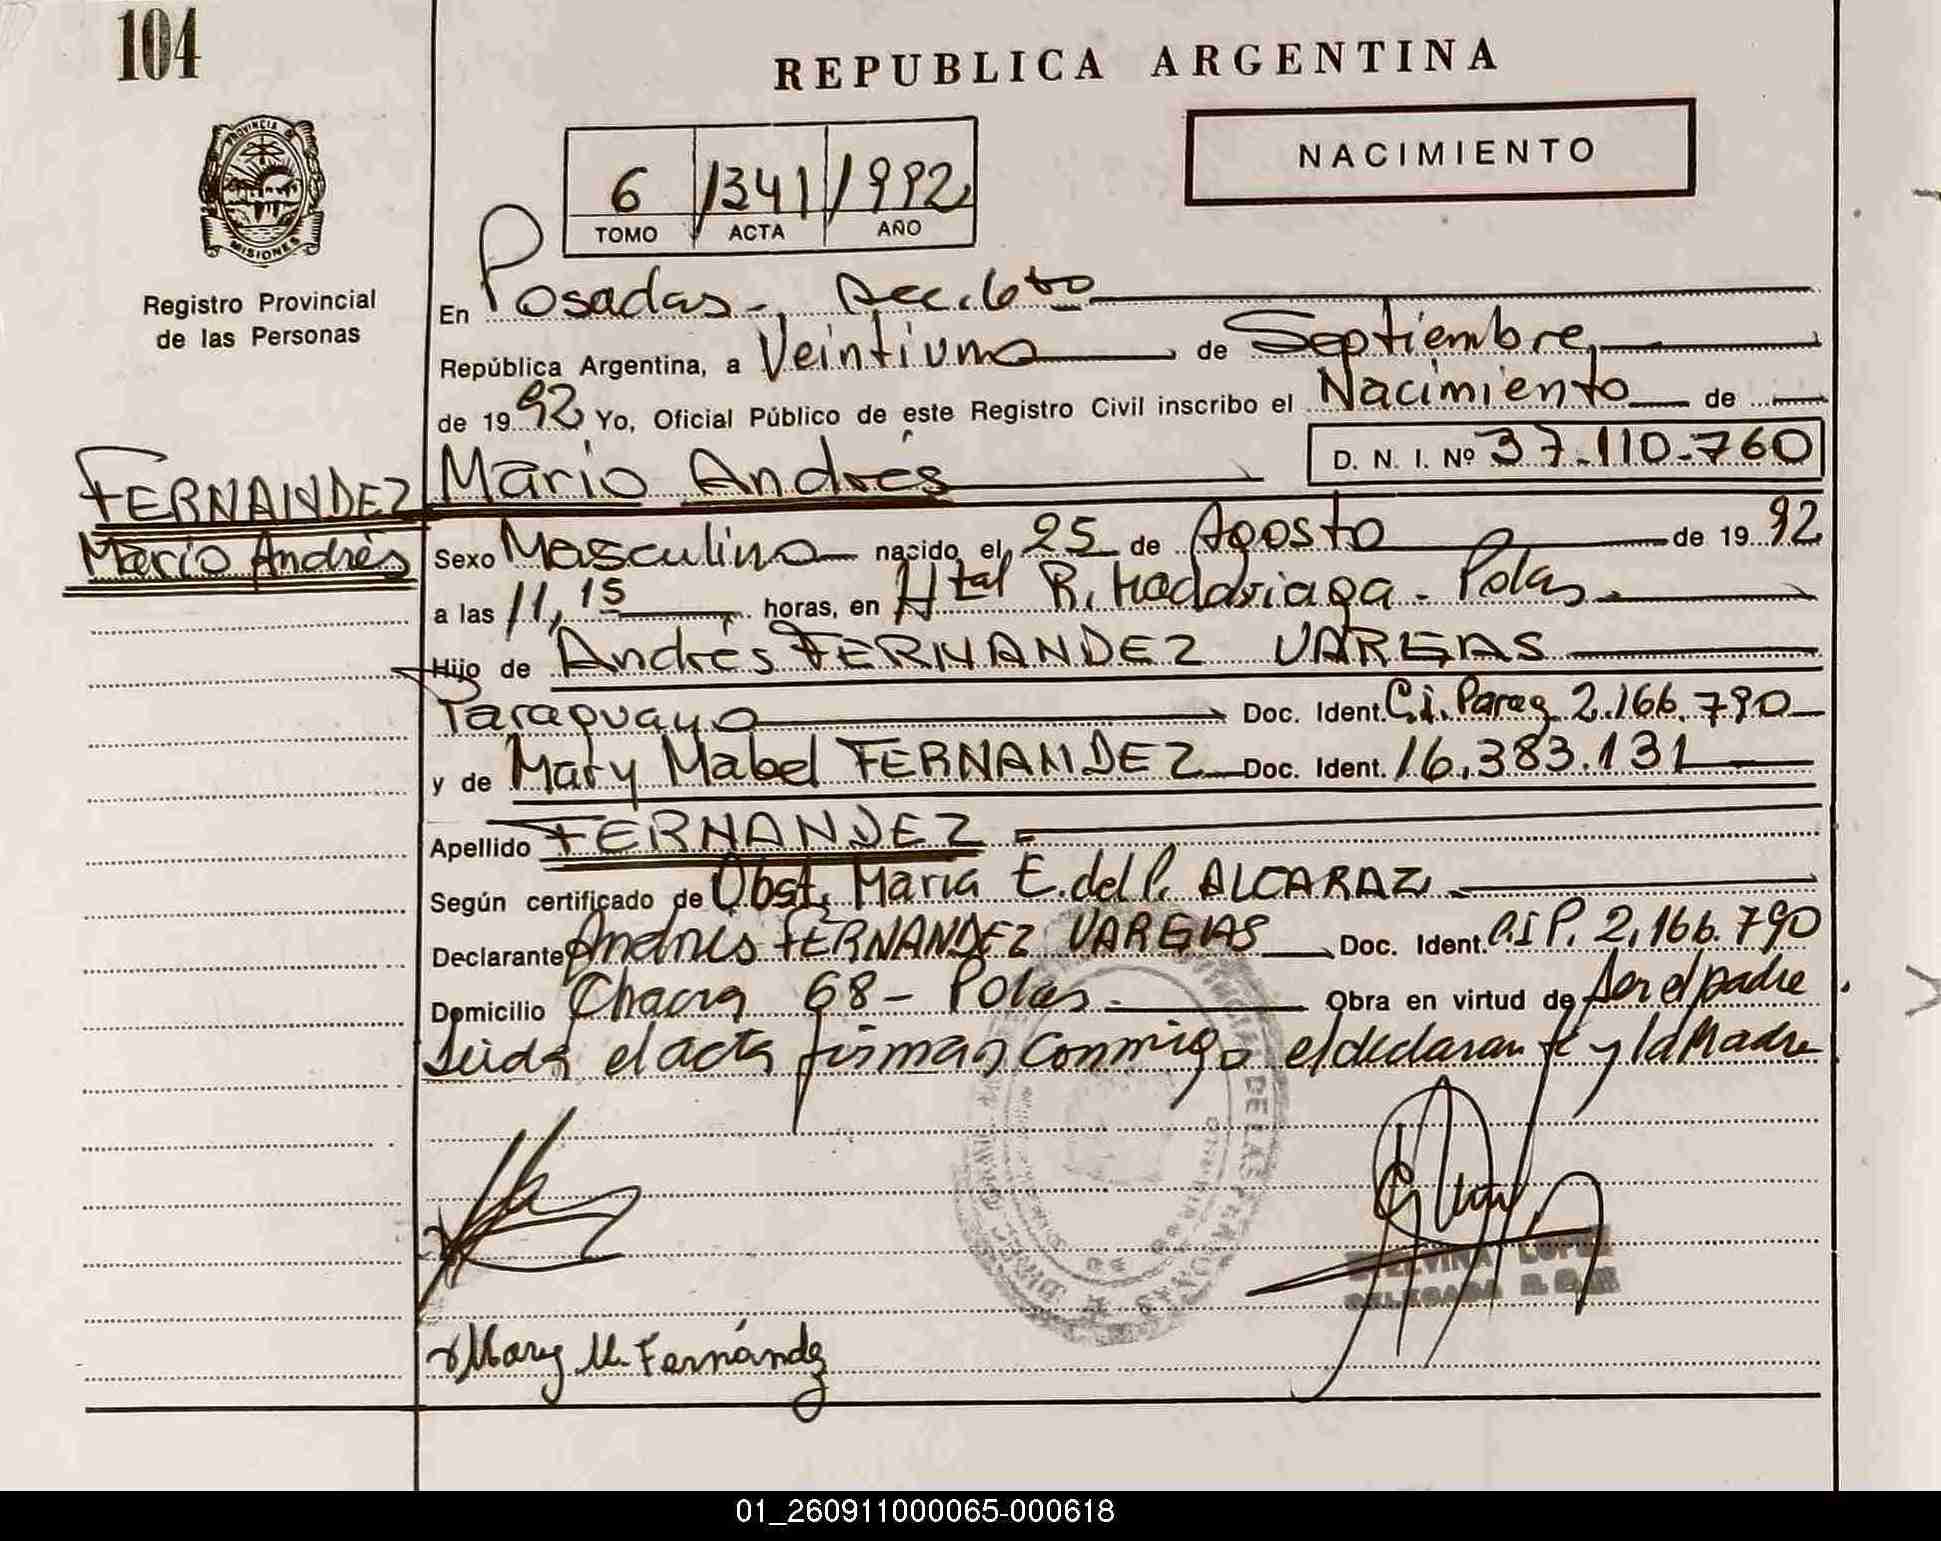 104
REPUBLICA ARGENTINA
NACIMIENTO
6 1341 1992
TOMO ACTA AÑO
PROVINCIA DE
MISIONES
Registro Provincial
de las Personas
En Posadas-, Secc. 6ta
República Argentina, a Veintiuno de Septiembre,
de 1992 Yo, Oficial Público de este Registro Civil inscribo el Nacimiento de
Mario Andrés D. N. I. Nº 37.110.760
FERNANDEZ
Mario Andrés
Sexo Masculino nacido el 25 de Agosto de 1992
a las 11,15 horas, en Htal R. Madariaga - Pdas.
Hijo de Andrés FERNANDEZ VARGAS
Paraguayo Doc. Ident. C.i. Parag 2.166.790
y de Mary Mabel FERNANDEZ Doc. Ident. 16.383.131
Apellido FERNANDEZ
Según certificado de Obst. Maria E. del P. ALCARAZ
Declarante Andrés FERNANDEZ VARGAS Doc. Ident. C.I P. 2.166.790
Domicilio Chacra 68 - Pdas. Obra en virtud de Ser el padre
Leida el acta firman conmigo el declarante y la Madre
Mary M. Fernández
ETELVINA LOPEZ
DELEGADA
01_260911000065-000618